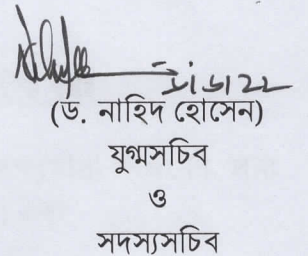 (ড. নাহিদ হোসেন)
যুগ্মসচিব
ও
সদস্যসচিব